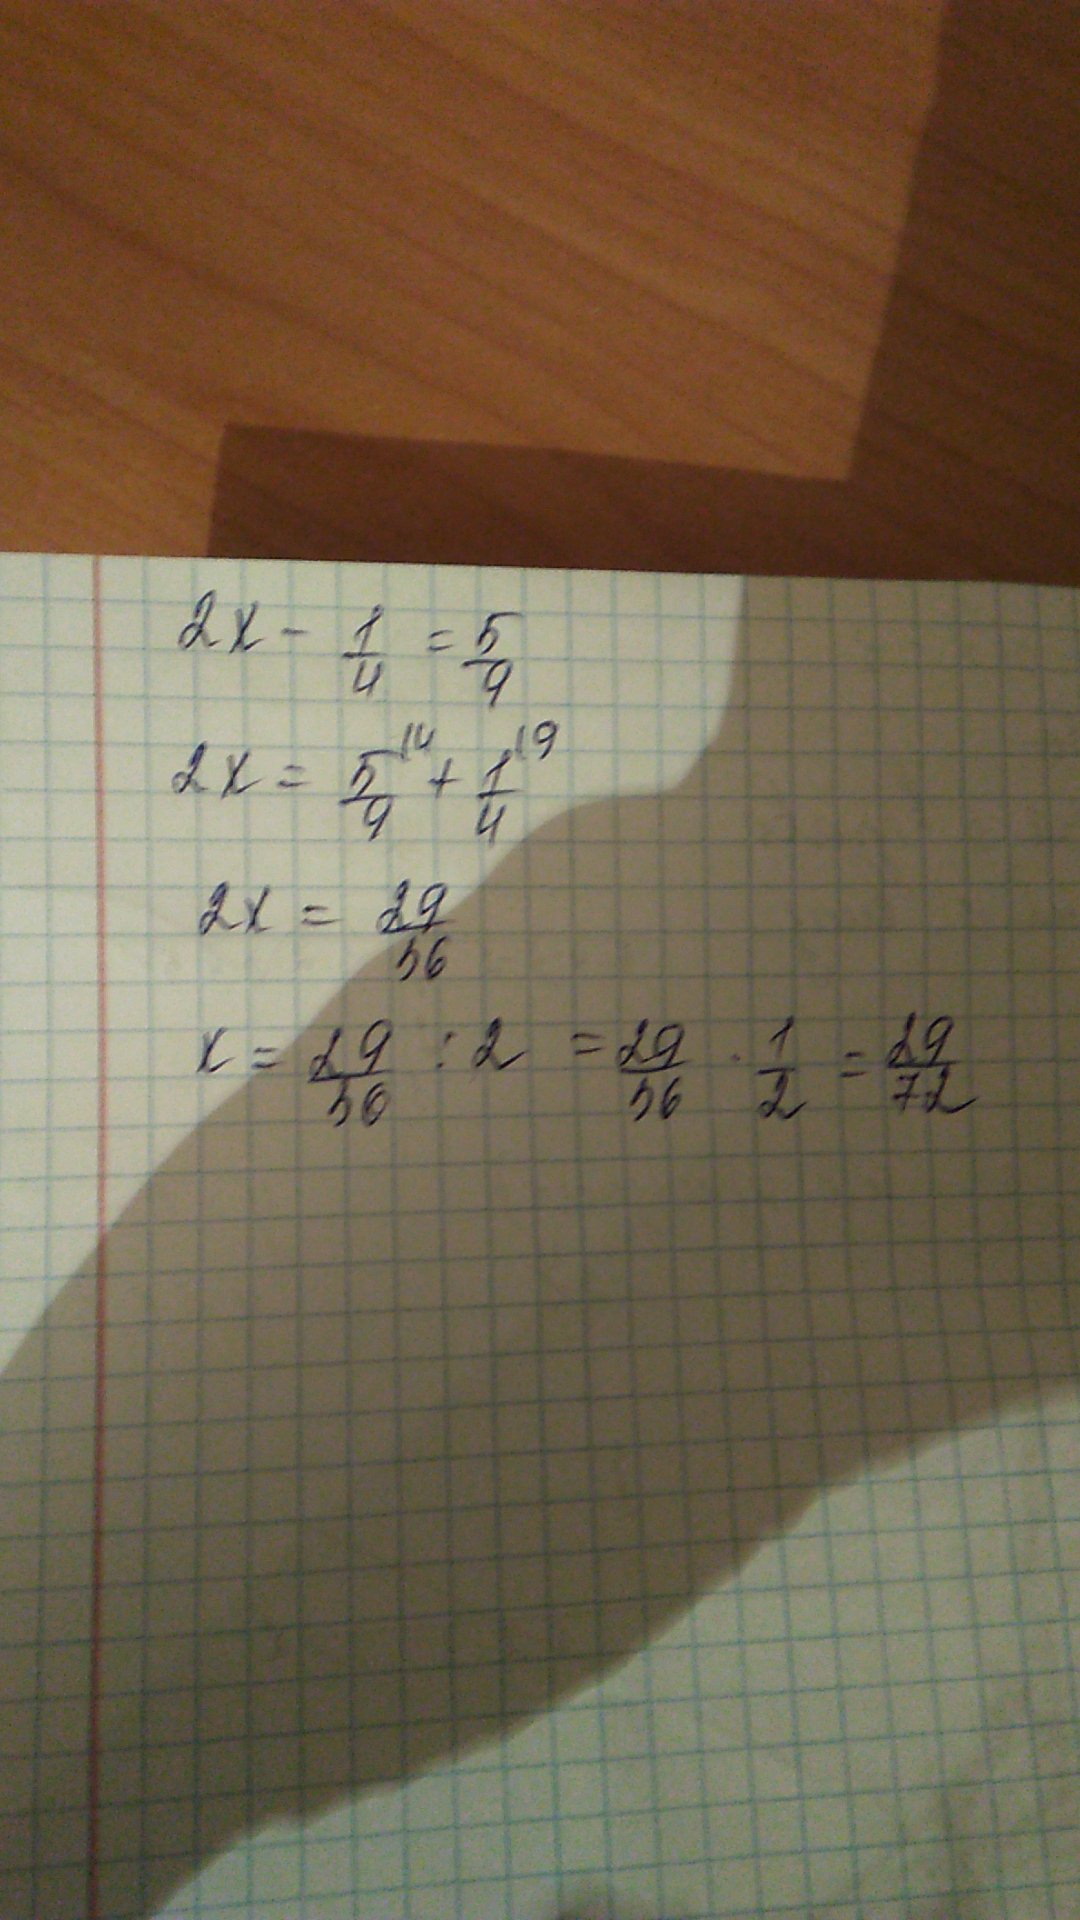 2x - 1/4 = 5/9
2x = 5/9 ⁽⁴ + 1/4 ⁽⁹
2x = 29/36
x = 29/36 : 2 = 29/36 · 1/2 = 29/72